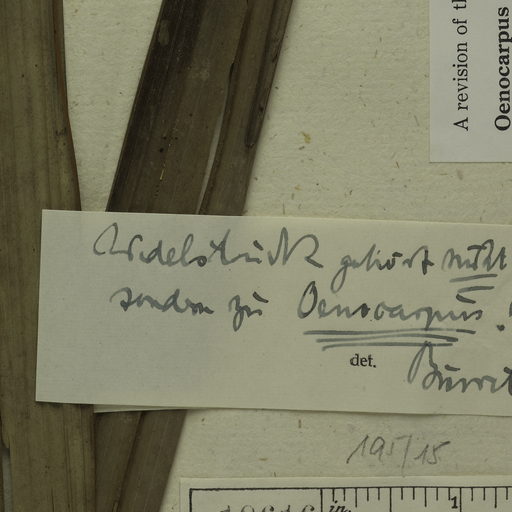 A revision of th
Oenocarpus
Wedelstück gehört nicht
sondern zu Oenocarpus.
det. Burret
195/15
in. 1